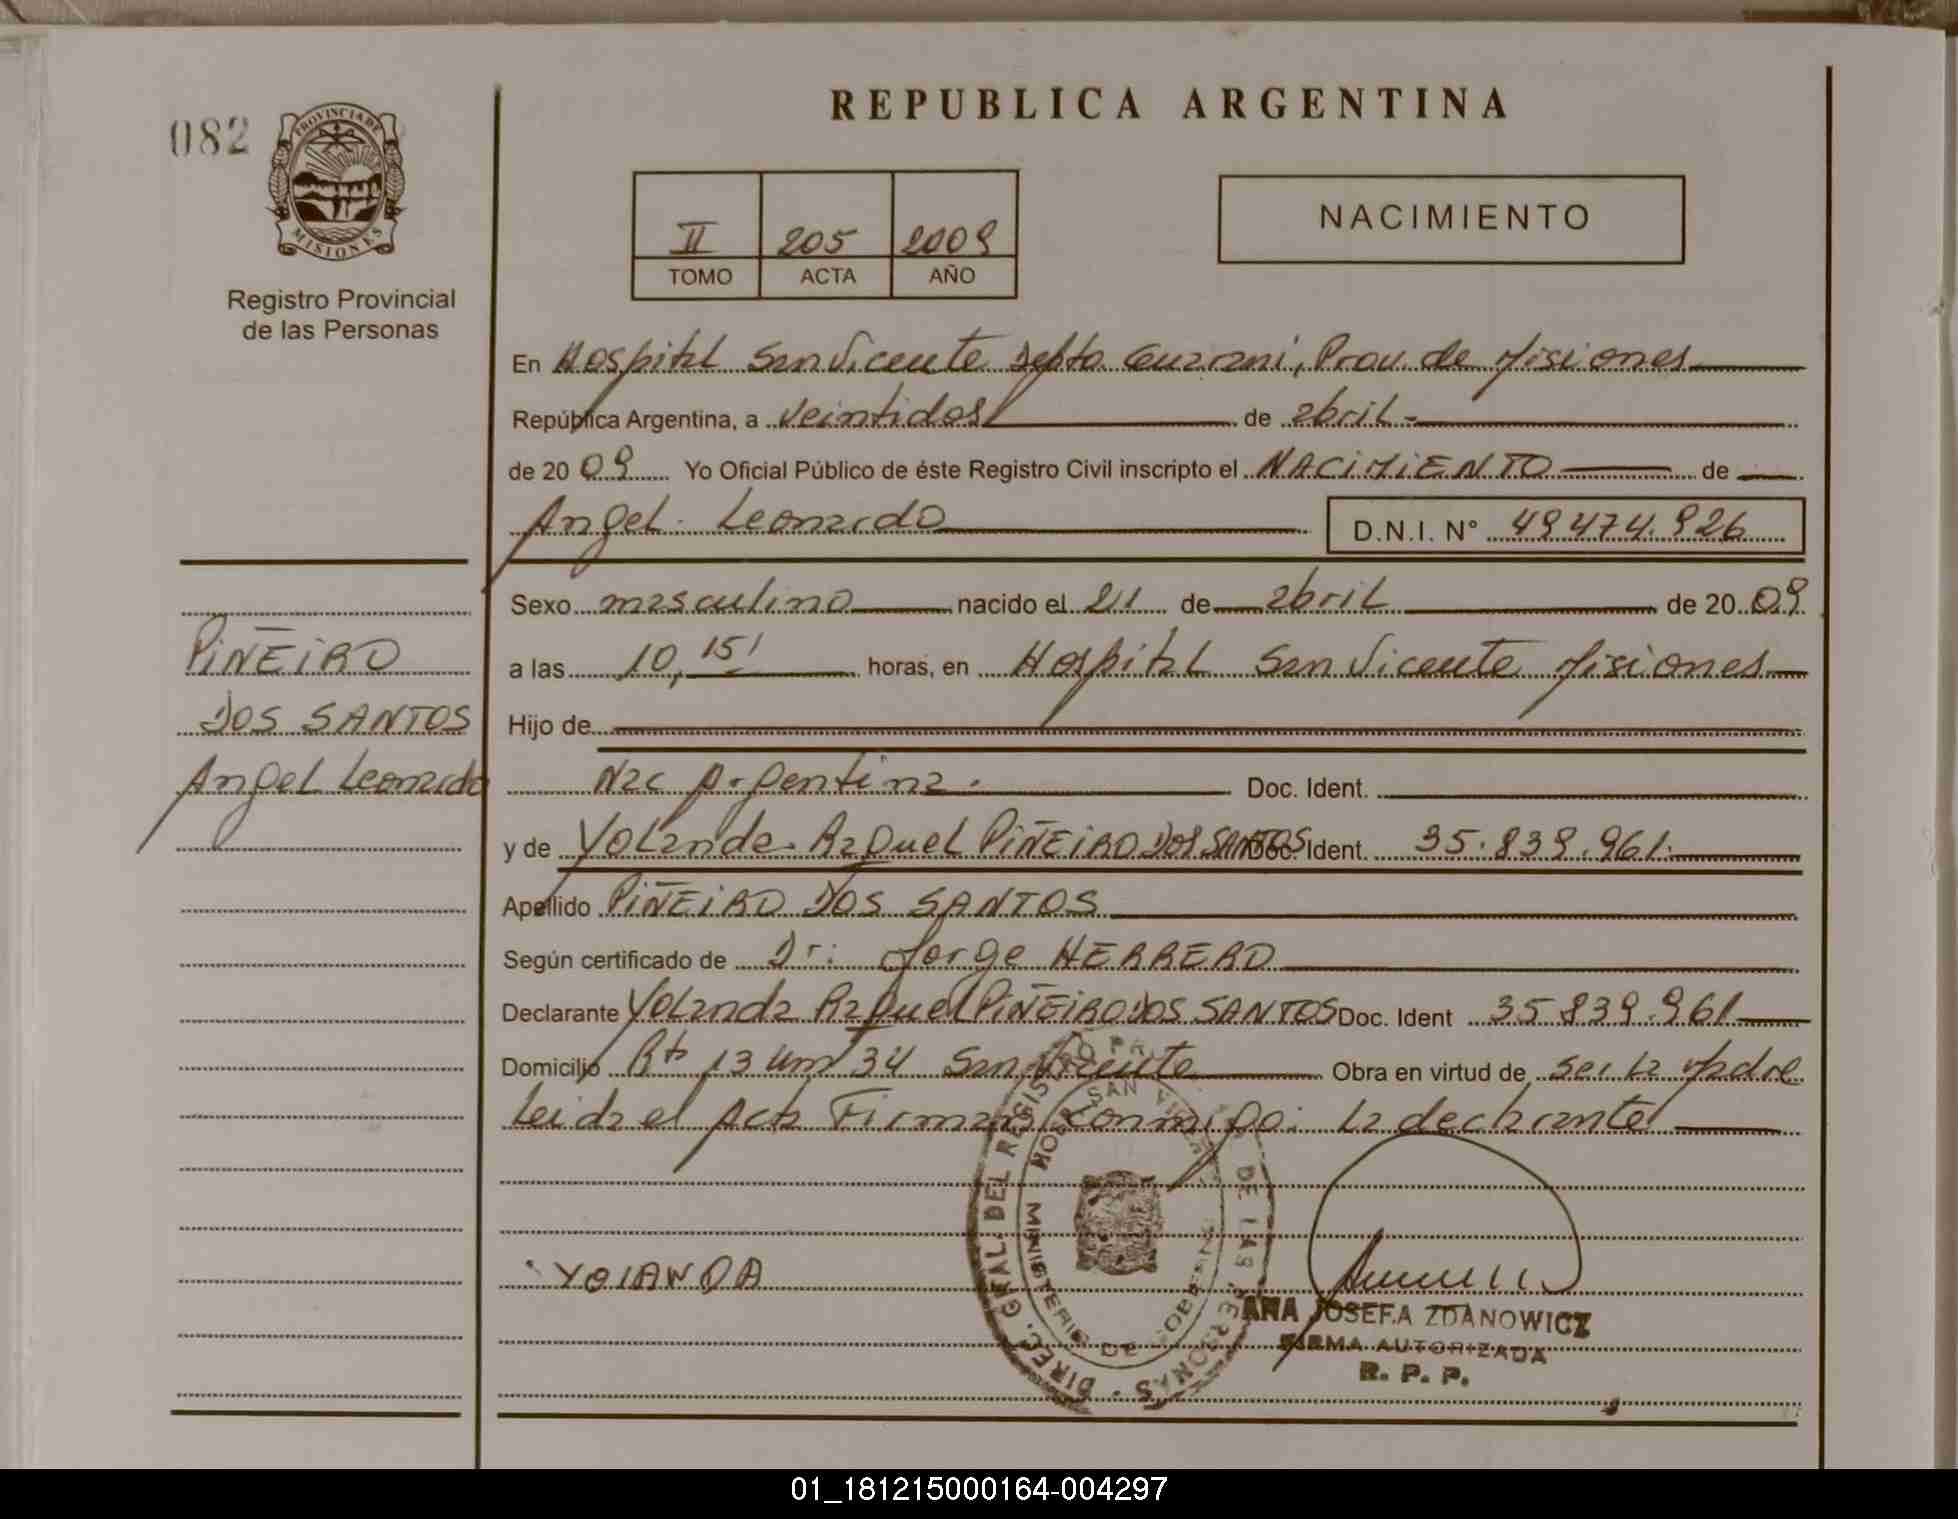 REPUBLICA ARGENTINA
082
PROVINCIA DE
MISIONES
Registro Provincial
de las Personas
II 205 2009
TOMO ACTA AÑO
NACIMIENTO
En Hospital San Vicente Depto. Guarani, Prov. de Misiones
República Argentina, a veintidos de abril.-
de 2009 Yo Oficial Público de éste Registro Civil inscripto el NACIMIENTO de
Angel Leonardo D.N.I. N° 49.474.926
Sexo masculino nacido el 21 de abril de 2009
a las 10,15' horas, en Hospital San Vicente Misiones
Hijo de
Nac Argentina. Doc. Ident.
y de Yolanda Raquel PIÑEIRO DOS SANTOS Doc. Ident. 35.839.961.
Apellido PIÑEIRO DOS SANTOS
Según certificado de Dr: Jorge HERRERO
Declarante Yolanda Raquel PIÑEIRO DOS SANTOS Doc. Ident 35.839.961
Domicilio Rta 13 km 34 San Vicente Obra en virtud de ser la Madre
Leida el Acta Firman Conmigo: la declarante
PIÑEIRO
DOS SANTOS
Angel Leonardo
YOLANDA
DIREC. GRAL. DEL REGISTRO PR DE LAS PERSONAS
MINISTERIO DE GOBIERNO
SAN VICENTE
ANA JOSEFA ZDANOWICZ
FIRMA AUTORIZADA
R. P. P.
01_181215000164-004297